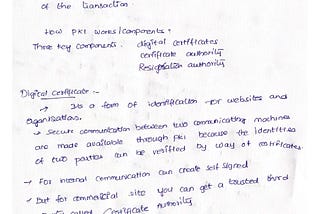 of the transaction
HOW PKI works/components?
Three key components. digital certificates
certificate authority
Resignation authority
Digital certificate :-
→ Its a form of identification for websites and
organisations.
→ Secure communication between two communicating machines
are made available through PKI because the identities
of two parties can be verified by way of certificates.
→ For internal communication can create self signed
→ But for commercial site you can get a trusted third
called Certificate Authority